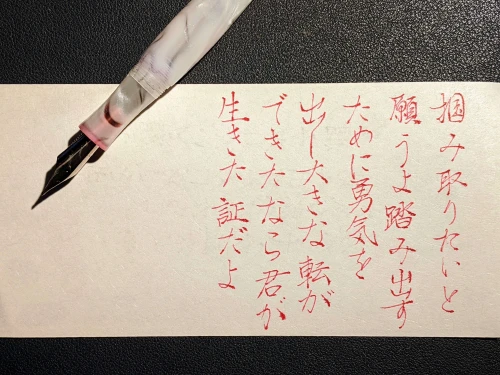 掴み取りたいと
願うよ踏み出す
ために勇気を
出し大きな転が
できたなら君が
生きた証だよ